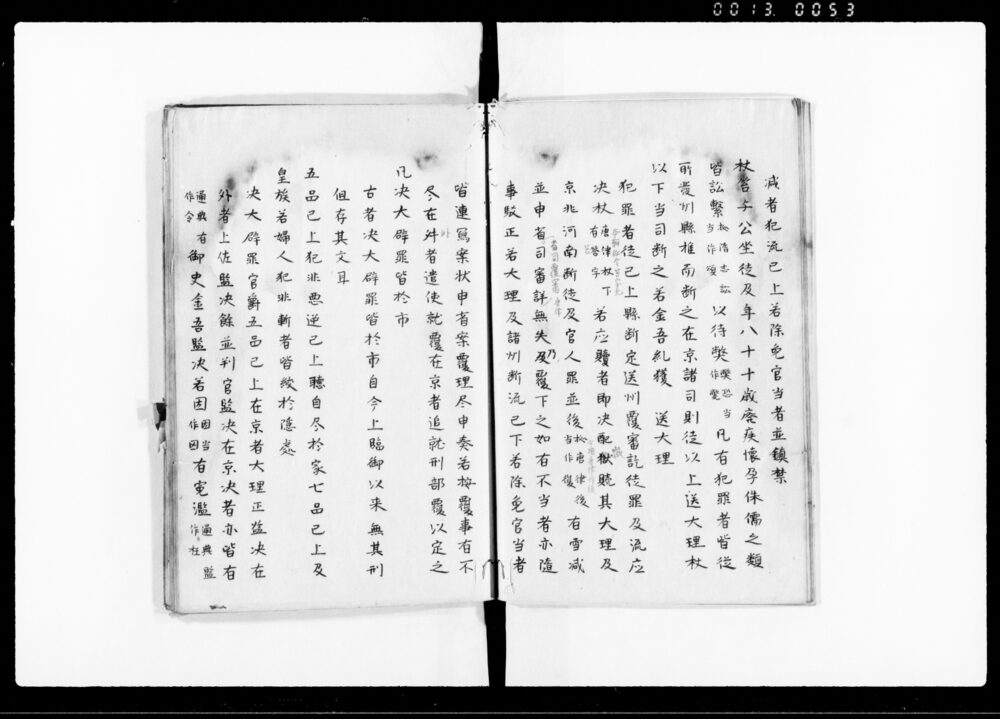 0013. 0053
減者犯流已上若除免官当者並鎖禁
杖笞与公坐徒及年八十十歳癈疾懐孕侏儒之類
皆訟繫松清志訟当作頌以待弊弊恐当作斃凡有犯罪者皆従
所発州縣推而断之在京諸司則徒以上送大理杖
以下当司断之若金吾糺獲　送大理
犯罪者徒已上縣断定送州覆審訖徒罪及流応
决杖唐律杖下有笞字若応贖者即决配徴贖其大理及
京兆河南断徒及官人罪並後松唐律後当作復有雪減
並申省司審詳無失乃覆下之如有不当者亦随
事駁正若大理及諸州断流已下若除免官当者
皆連写案状申省案覆理尽申奏若按覆事有不
尽在外者遣使就覆在京者追就刑部覆以定之
凡决大辟罪皆於市
古者决大辟罪皆於市自今上臨御以来無其刑
但存其文耳
五品已上犯非悪逆已上聴自尽於家七品已上及
皇族若婦人犯非斬者皆絞於隠処
决大辟罪官爵五品已上在京者大理正監决在
外者上佐監决餘並判官監决在京决者亦皆有
通典有作令御史金吾監决若因因当作囚有冤濫通典監作枉